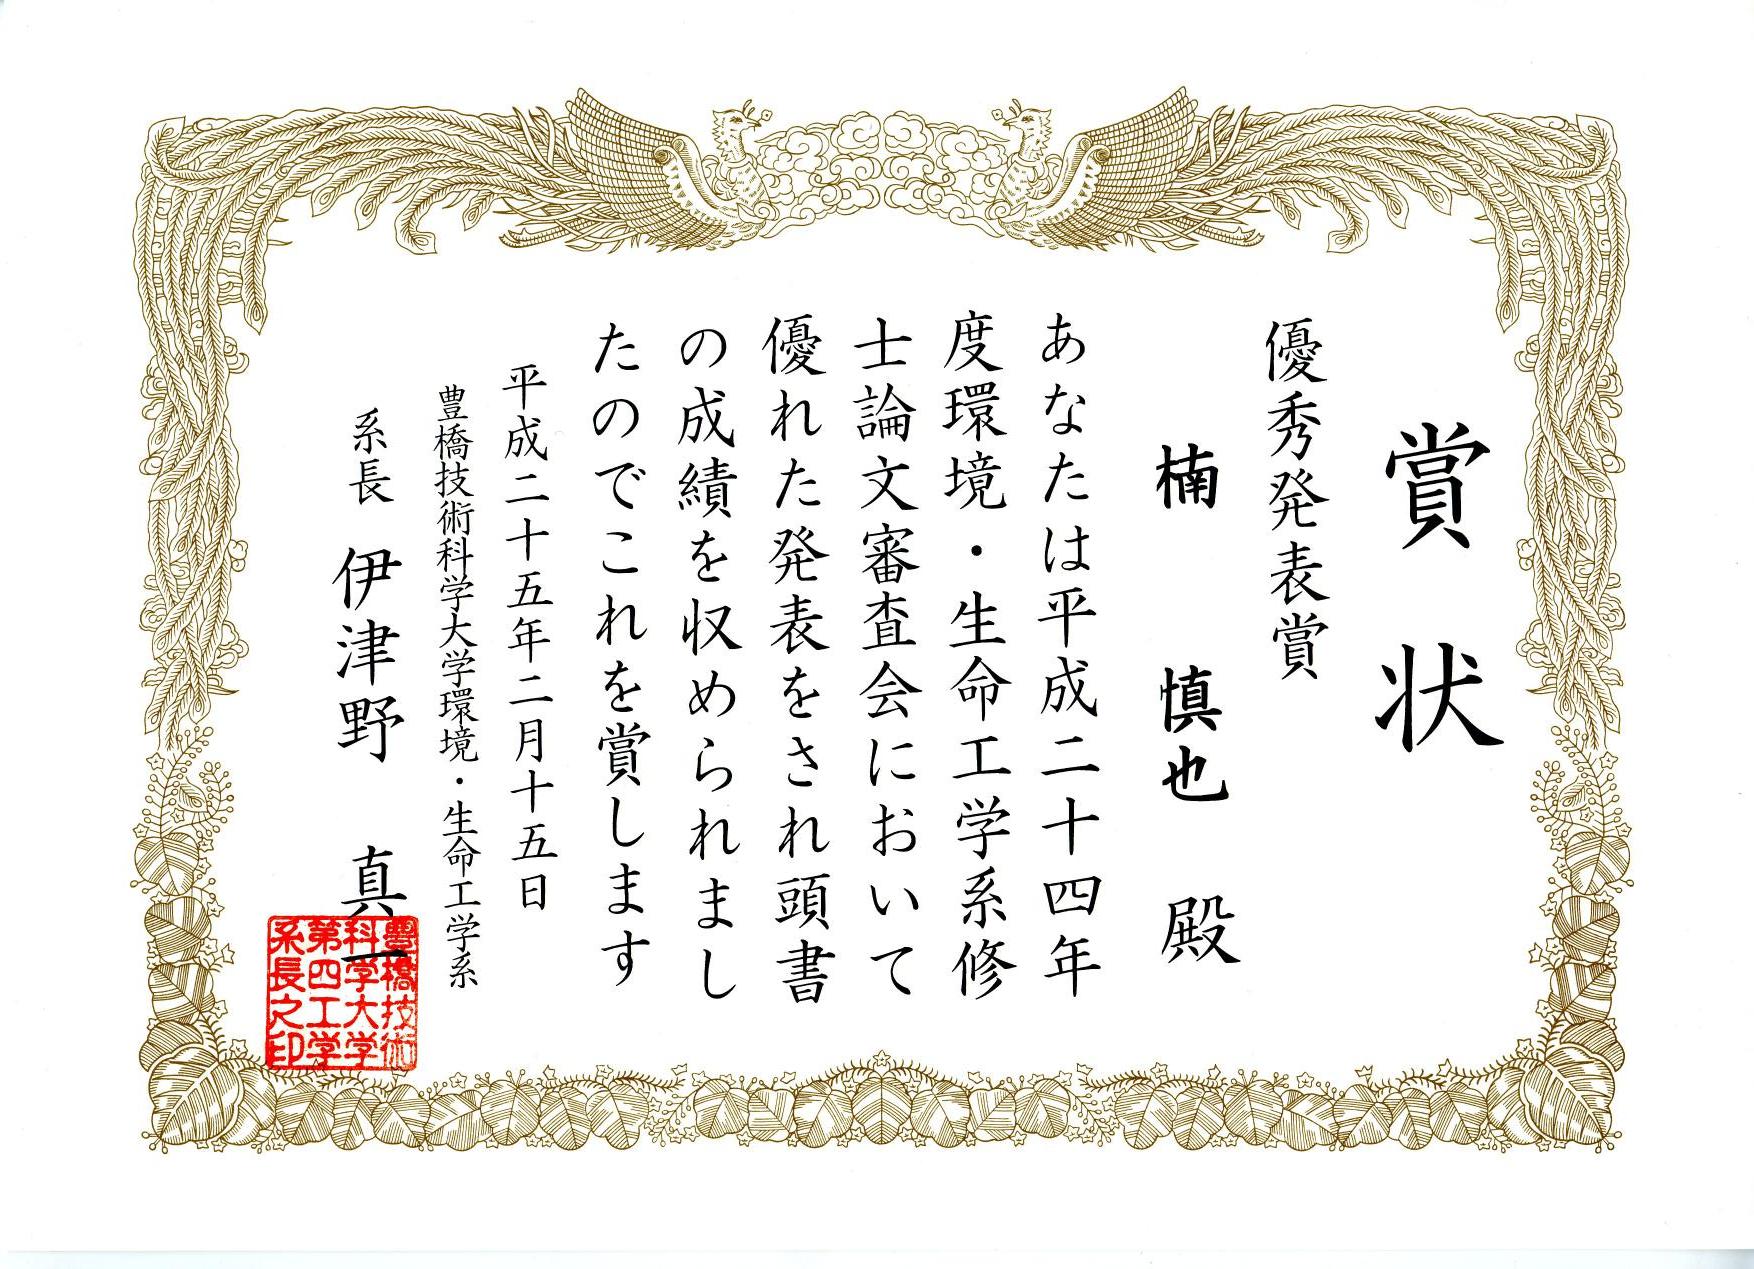 賞状
優秀発表賞
楠 慎也 殿
あなたは平成二十四年
度環境・生命工学系修
士論文審査会において
優れた発表をされ頭書
の成績を収められまし
たのでこれを賞します
平成二十五年二月十五日
豊橋技術科学大学環境・生命工学系
系長 伊津野 真一
豊橋技術
科学大学
第四工学
系長之印